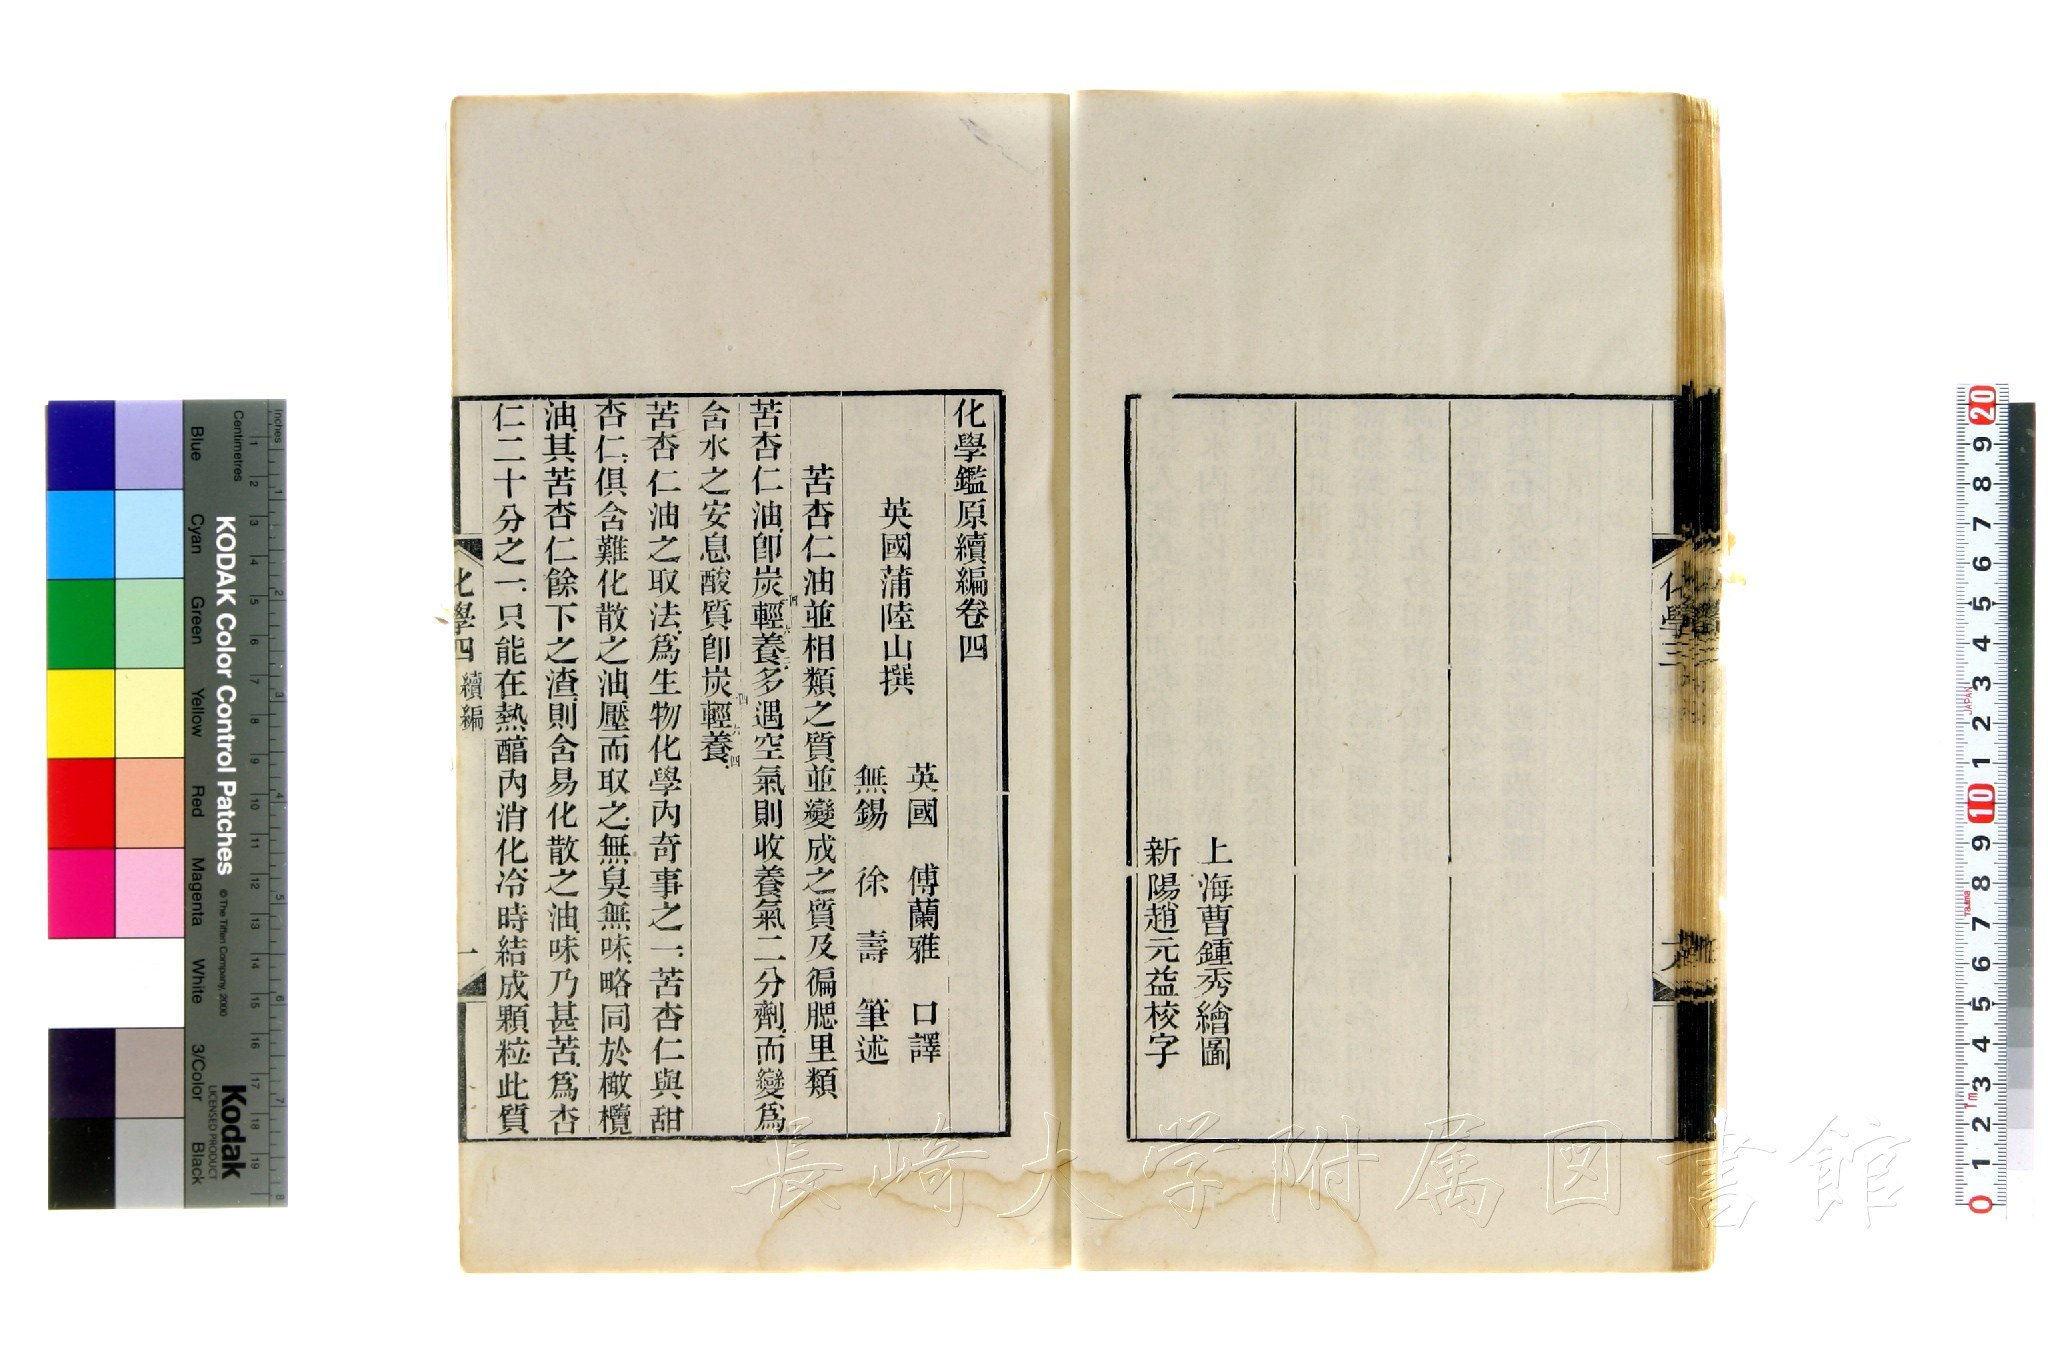 上海曹鍾秀繪圖
新陽趙元益校字
化學鑑原續編卷四
英國蒲陸山撰
英國 傅蘭雅 口譯
無錫 徐 壽 筆述
苦杏仁油並相類之質並變成之質及徧腮里類
苦杏仁油卽炭輕養多遇空氣則收養氣二分劑而變爲
含水之安息酸質卽炭輕養
苦杏仁油之取法爲生物化學內奇事之一苦杏仁與甜
杏仁俱含難化散之油壓而取之無臭無味略同於橄欖
油其苦杏仁餘下之渣則含易化散之油味乃甚苦爲杏
仁二十分之一只能在熱醕內消化冷時結成顆粒此質
化學四 續編
一
化學三
長崎大学附属図書館
Inches
Centimetres
KODAK Color Control Patches
© The Tiffen Company, 2000
Blue Cyan Green Yellow Red Magenta White 3/Color Black
Kodak
LICENSED PRODUCT
20 9 8 7 6 5 4 3 2 1 10 9 8 7 6 5 4 3 2 1 0
JAPAN